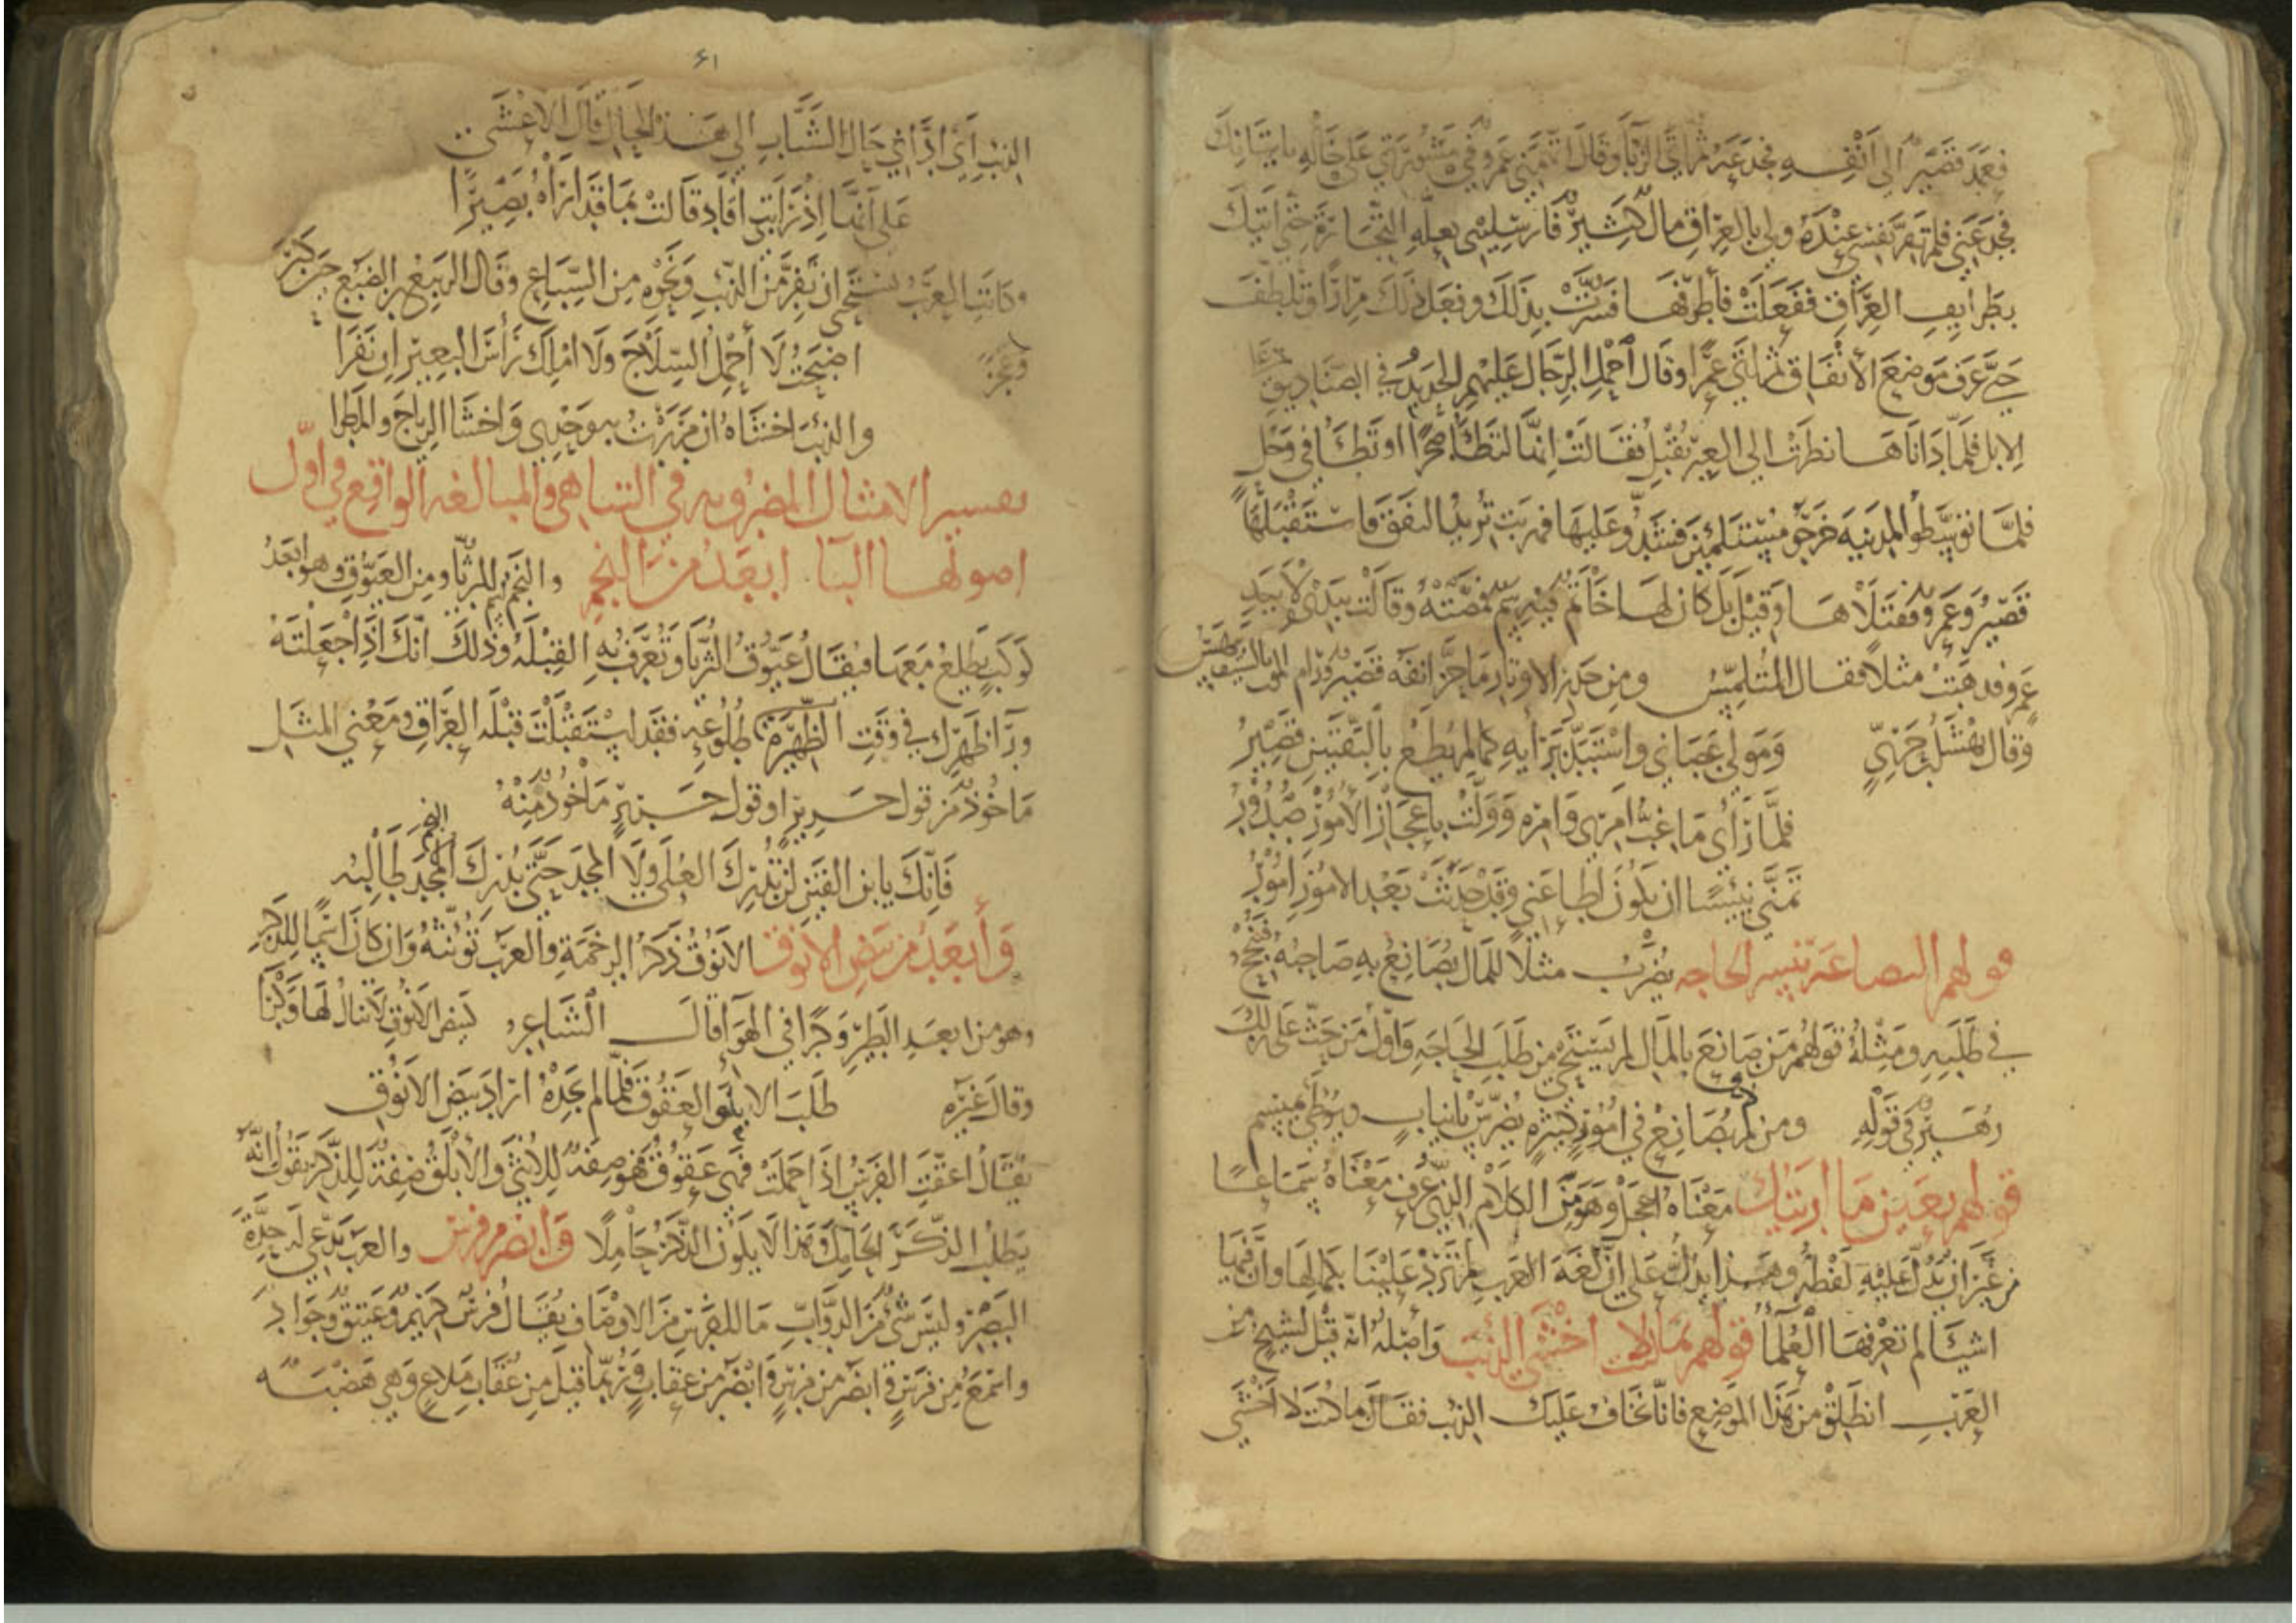 فعمد قصير الى انفه فجدعه ثم اتى الزبا وقال اتهمني عمرو في مشورتي على خاله باتيانك
فجدعني فلم تقر نفسي عنده ولي بالعراق مال كثير فارسليني بعلة التجارة حتى اتيك
بطرايف العراق ففعلت فأطرفها فسرت بذلك وفعل ذلك مرارا وتلطف
حتى عرف موضع الأنفاق ثم اتى عمرا وقال احمل الرجال عليهم الحديد في الصناديق على
الابل فلما داناها نظرت الى العير تقبل فقالت انها لتطأ صخرا او تطأ في وحل
فلما توسطوا المدينه خرجو مستلئمين فشدو عليها فهربت تريد النفق فاستقبلها
قصير وعمرو فقتلاها وقيل بل كان لها خاتم فيه سم فمصته وقالت بيدي لا بيد
عمرو فذهبت مثلا فقال المتلمس ومن حذر الاوتار ما حز انفه قصير ورام الموت بالسيف بيهس
وقال نهشل بن حري ومولى عصاني واستبد برأيه كما لم يطع بالبقتين قصير
فلما رأى ما غب امري وامره وولت باعجاز الأمور صدور
تمنى نئيشا ان يكون اطاعني وقد حدثت بعد الامور امور
قولهم البضاعة تيسر الحاجه يضرب مثلا للمال يصانع به صاحبه فتنجح
في طلبه ومثله قولهم من صانع بالمال لم يستحي من طلب الحاجه واول من حث على ذلك
زهير في قوله ومن لم يصانع في امور كثيره يضرس بانياب ويوطى بمنسم
قولهم بعين ما ارينك معناه اعجل وهو من الكلام الذي عرف معناه سماعا
من غير ان يدل عليه لفظه وهذا يدل على ان لغة العرب لم ترد علينا بكمالها وان فيها
اشيا لم تعرفها العلما قولهم بما لا اخشى الذيب وأصله انه قيل لشيخ من
العرب انطلق من هذا الموضع فانا نخاف عليك الذيب فقال بما كنت لا اخشى
٦١
الذيب أي اذا في حال الشباب الى هذه الحال قال الاعشى
على انها اذ راتني اقاد قالت بما قد اراه بصيرا
وكانت العرب تستحي ان تفر من الذيب ونحوه من السباع وقال الربيع بن الضبع حين كبر
وعجز اصبحت لا أحمل السلاح ولا املك رأس البعير ان نفرا
والذيب اخشاه ان مررت به وحدي واخشا الرياح والمطرا
تفسير الامثال المضروبه في التناهي والمبالغه الواقع في اول
اصولها البا ابعد من النجم والنجم الثريا ومن العيوق وهو ابعد
كوكب يطلع معها فيقال عيوق الثريا وتعرف به القبلة وذلك انك اذا جعلته
ورا ظهرك في وقت طلوعه فقد استقبلت قبلة العراق ومعنى المثل
ماخوذ من قول جرير او قول جرير ماخوذ منه
فإنك يا بن القين لن تدرك العلى ولا المجد حتى يدرك النجم طالبه
وأبعد من بيض الانوق الانوق ذكر الرخمة والعرب تؤنثه وان كان اسما للذكر
وهو من ابعد الطير وكرا في الهوا قال الشاعر كبيض الانوق لا تنال لها وكرا
وقال غيره طلب الابلق العقوق فلما لم يجده اراد بيض الانوق
يقال اعقت الفرس اذا حملت فهي عقوق فهو صفة للانثى والأبلق صفة للذكر يقول انه
يطلب الذكر الحامل وهذا لا يكون الذكر حاملا وأبصر من فرس والعرب تدعي له حدة
البصر وليس شئ من الدواب ما للفرس من الاوصاف يقال فرس كريم وعتيق وجواد
واسمع من فرس وابصر من فرس وابصر من عقاب وربما قيل من عقاب ملاع وهي هضبه